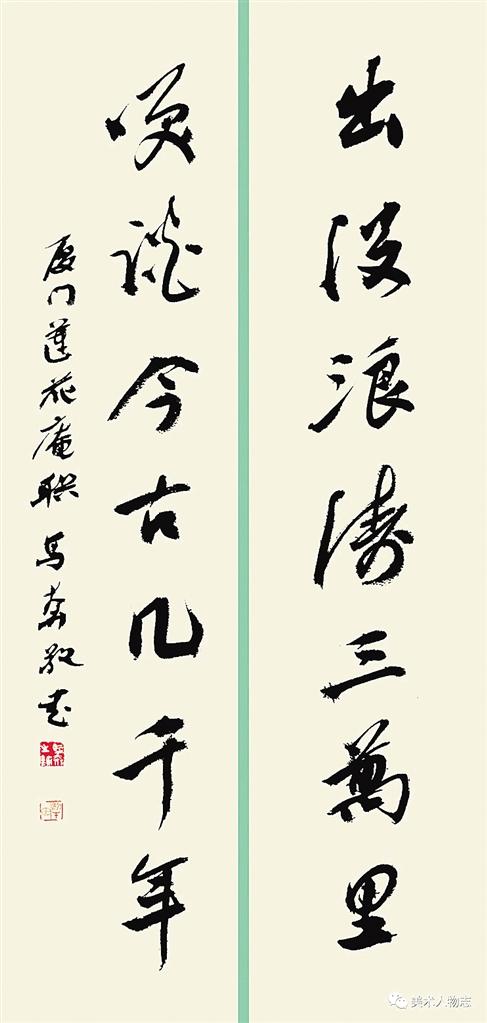 出没浪涛三萬里
咲谈今古几千年
厦门蓮花庵联 马奔敬书
美术人物志